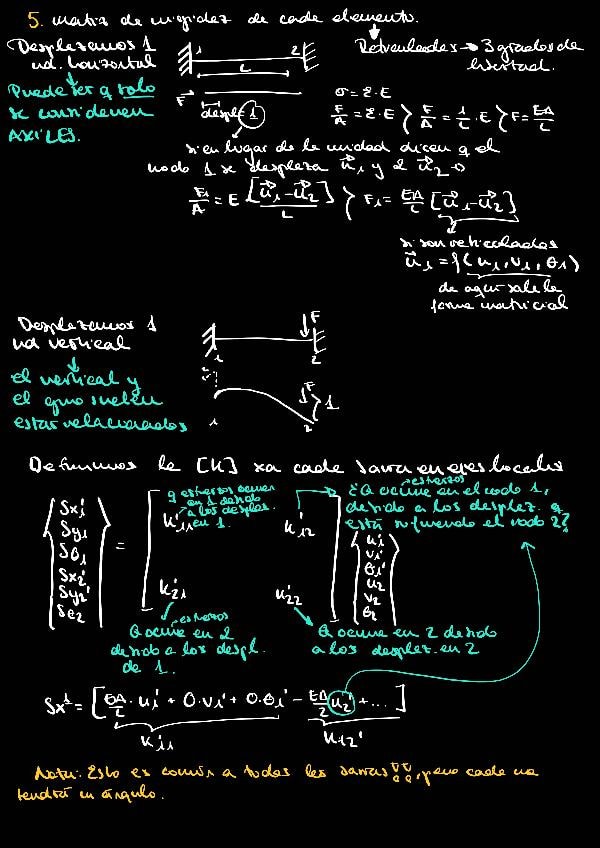 5. matriz de rigidez de cada elemento.
Desplazamos 1
ud. horizontal
Reticuladas → 3 grados de
libertad.
Puede ser q solo
se consideren
AXILES.
1
2
L
F
despl = 1
σ = Σ · E
F/A = Σ · E } F/A = 1/L · E } F = EA/L
si en lugar de la unidad dicen q el
nodo 1 se desplaza u⃗1 y el u⃗2 →
F1/A = E [u⃗1 - u⃗2]/L } F1 = EA/L [u⃗1 - u⃗2]
si son reticuladas
u⃗1 = f(u1, v1, θ1)
de aquí sale la
forma matricial
Desplazamos 1
ud vertical
F
1
2
el vertical y
el giro suelen
estar relacionados
F
1
1
2
Definimos la [K] xa cada barra en ejes locales
q esfuerzos ocurren
en 1 debido
a los desplaz.
en 1.
esfuerzos
¿Q ocurre en el nodo 1,
debido a los desplaz. q
está sufriendo el nodo 2?
Sx1'
Sy1
Sθ1
Sx2'
Sy2'
Sθ2
=
K11'
K12'
K21'
K22'
u1'
v1'
θ1'
u2
v2
θ2
esfuerzos
Q ocurre en 2
debido a los despl.
de 1.
Q ocurre en 2 debido
a los desplaz. en 2
Sx1' = [EA/L · u1' + 0 · v1' + 0 · θ1' - EA/L u2' + ...]
K11'
K12'
Nota: Esto es común a todas las barras!!, pero cada una
tendrá un ángulo.